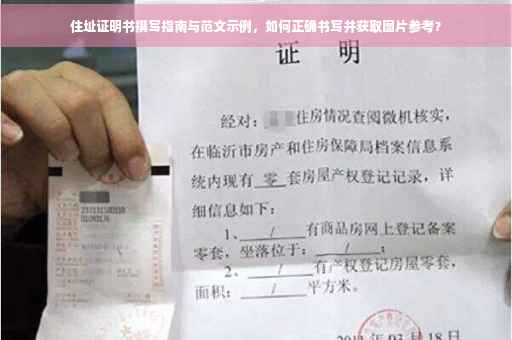 住址证明书撰写指南与范文示例，如何正确书写并获取图片参考？
证 明
经对：住房情况查阅微机核实，
在临沂市房产和住房保障局档案信息系
统内现有 零 套房屋产权登记记录，详
细信息如下：
1、 / 有商品房网上登记备案
零套，坐落位于： / ；
2、 / 有产权登记房屋零套，
面积： / 平方米。
03 月 18 日